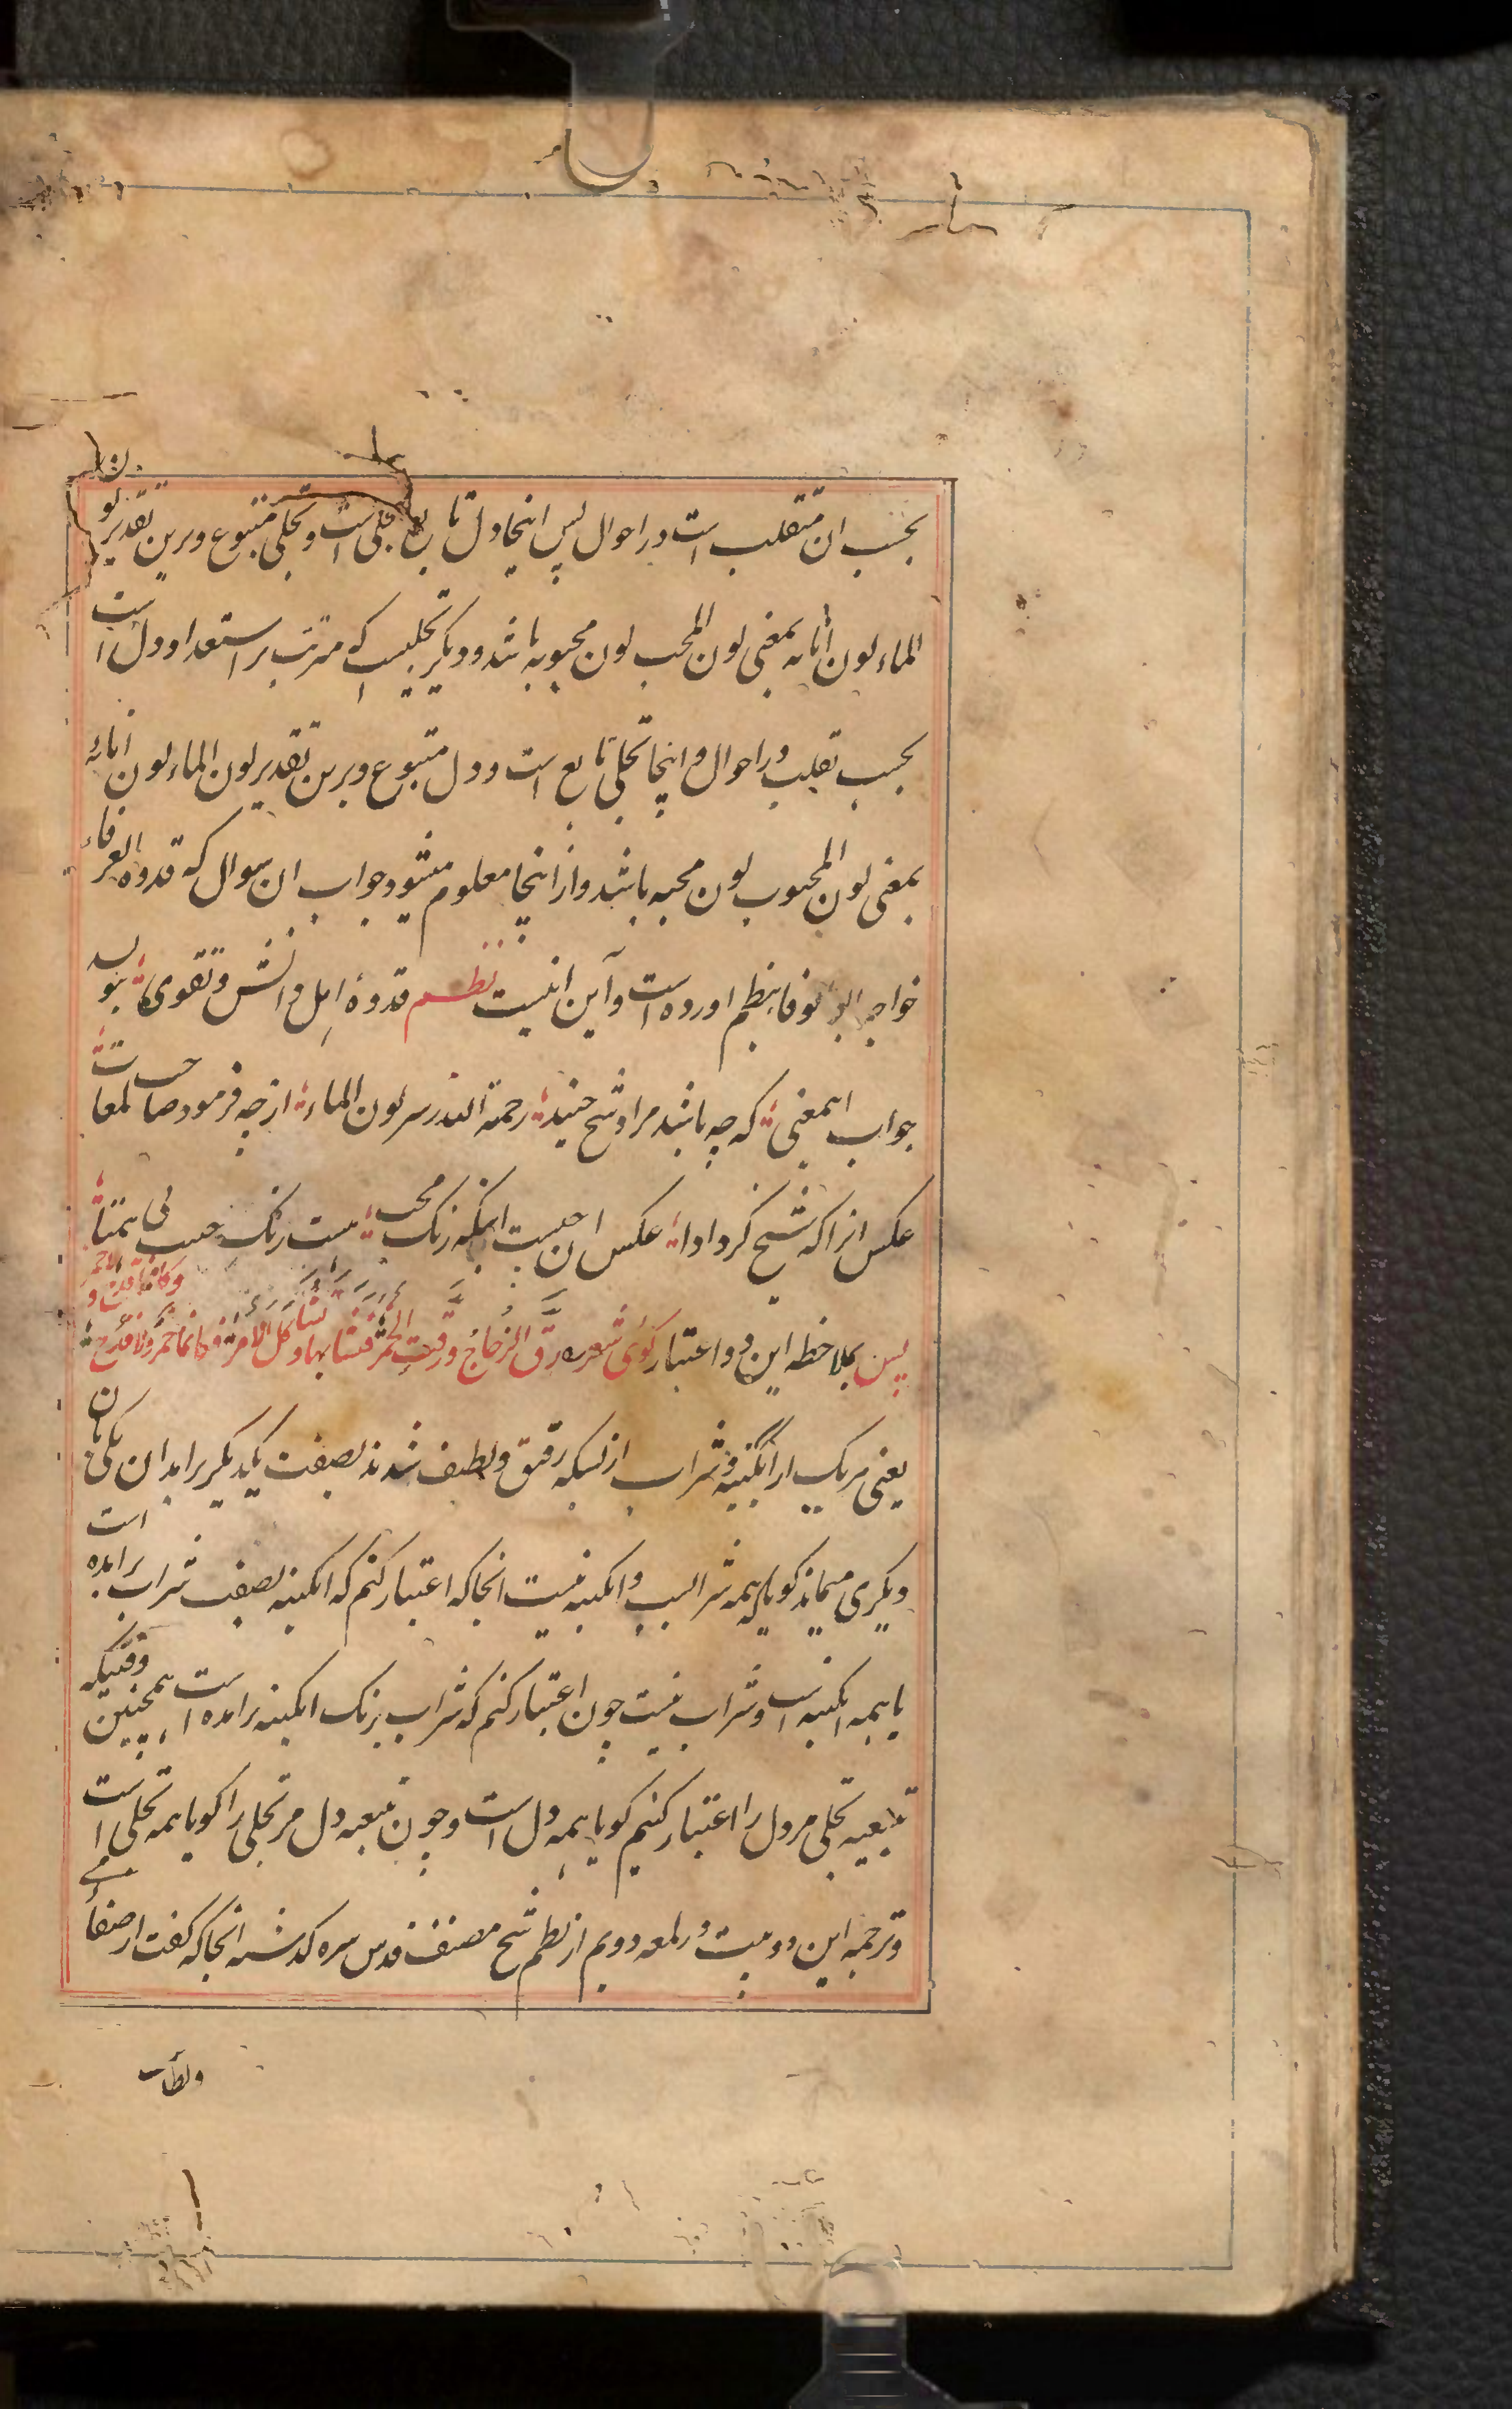 بحسب ان متقلب است در احوال پس اینجا دل تابع تجلی است و تجلی متبوع و برین تقدیر لون
الماء لون انائه بمعنی لون المحب لون محبوبه باشد و دیگر تجلییست که مترتب بر استعداد دل است
بحسب تقلب در احوال و اینجا تجلی تابع است و دل متبوع و برین تقدیر لون الماء لون انائه
بمعنی لون المحبوب لون محبه باشد و از اینجا معلوم میشود جواب ان سوال که قدوة العرفاء
خواجه ابو الوفا بنظم اورده است و آین اینست نظم قدوهٔ اهل دانش و تقوی بنویسد
جواب اینمعنی که چه باشد مراد شیخ جنید رحمة الله در سر لون الماء از چه فرمود صاحب لمعات
عکس انرا که شیخ کرد ادا عکس ان چیست اینکه رنک محب هست رنک حبیب بی همتا
پس بملاحظه این دو اعتبار کوئی شعر رق الزجاج و رقت الخمر فتشابها و تشاکل الامر فکانما خمر ولا قدح وکانما قدح ولا خمر
یعنی هریک از ابگینه و شراب از بسکه رقیق و لطیف شدند بصفت یکدیکر برامدان یکی بان
دیکری میماند کویا که همه شرابست و ابکینه نیست انجا که اعتبار کنم که ابکینه بصفت شراب برامده است
یا همه ابکینه است و شراب نیست چون اعتبار کنم که شراب برنک ابکینه برامده است همچنین وقتیکه
تبعیه تجلی مر دل را اعتبار کنیم کویا همه دل است و چون تبعیه دل مر تجلی را کویا همه تجلی است
و ترجمه این دو بیت در لمعه دویم از نظم شیخ مصنف قدس سره کذشته انجا که کفت از صفای می
ولطافت